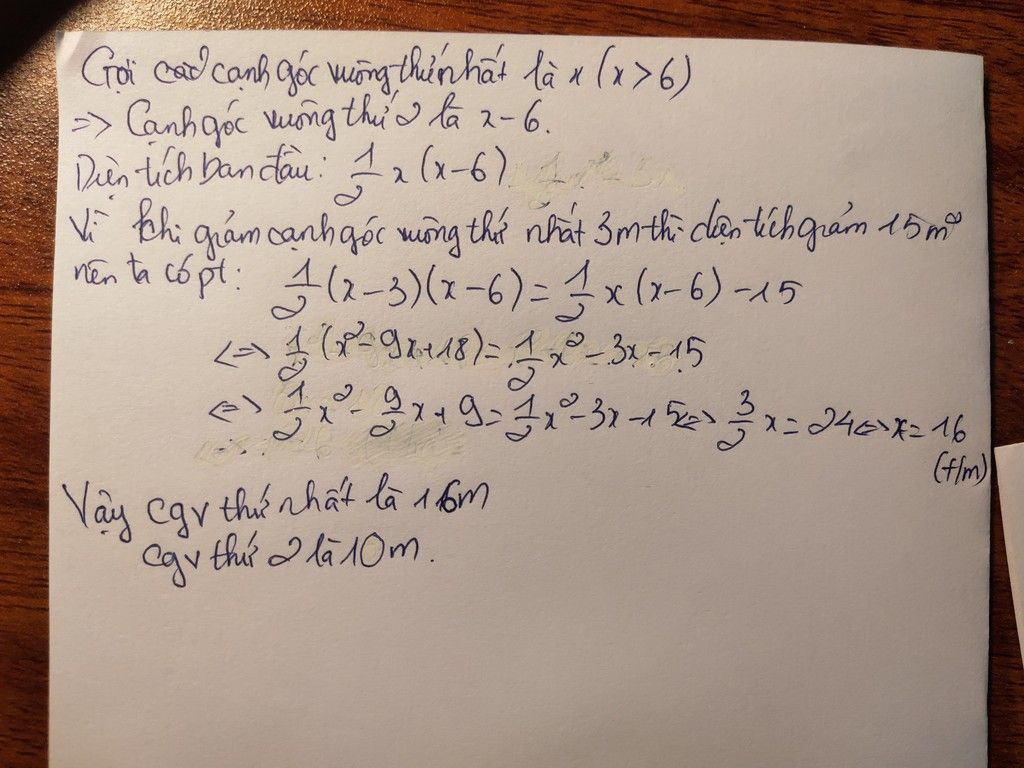 Gọi cạnh góc vuông thứ nhất là x (x > 6)
=> Cạnh góc vuông thứ 2 là x - 6.
Diện tích ban đầu: 1/2 x (x - 6)
Vì khi giảm cạnh góc vuông thứ nhất 3m thì diện tích giảm 15m²
nên ta có pt: 1/2 (x - 3)(x - 6) = 1/2 x (x - 6) - 15
<=> 1/2 (x² - 9x + 18) = 1/2 x² - 3x - 15
<=> 1/2 x² - 9/2 x + 9 = 1/2 x² - 3x - 15 <=> 3/2 x = 24 <=> x = 16
(t/m)
Vậy cgv thứ nhất là 16m
cgv thứ 2 là 10m.